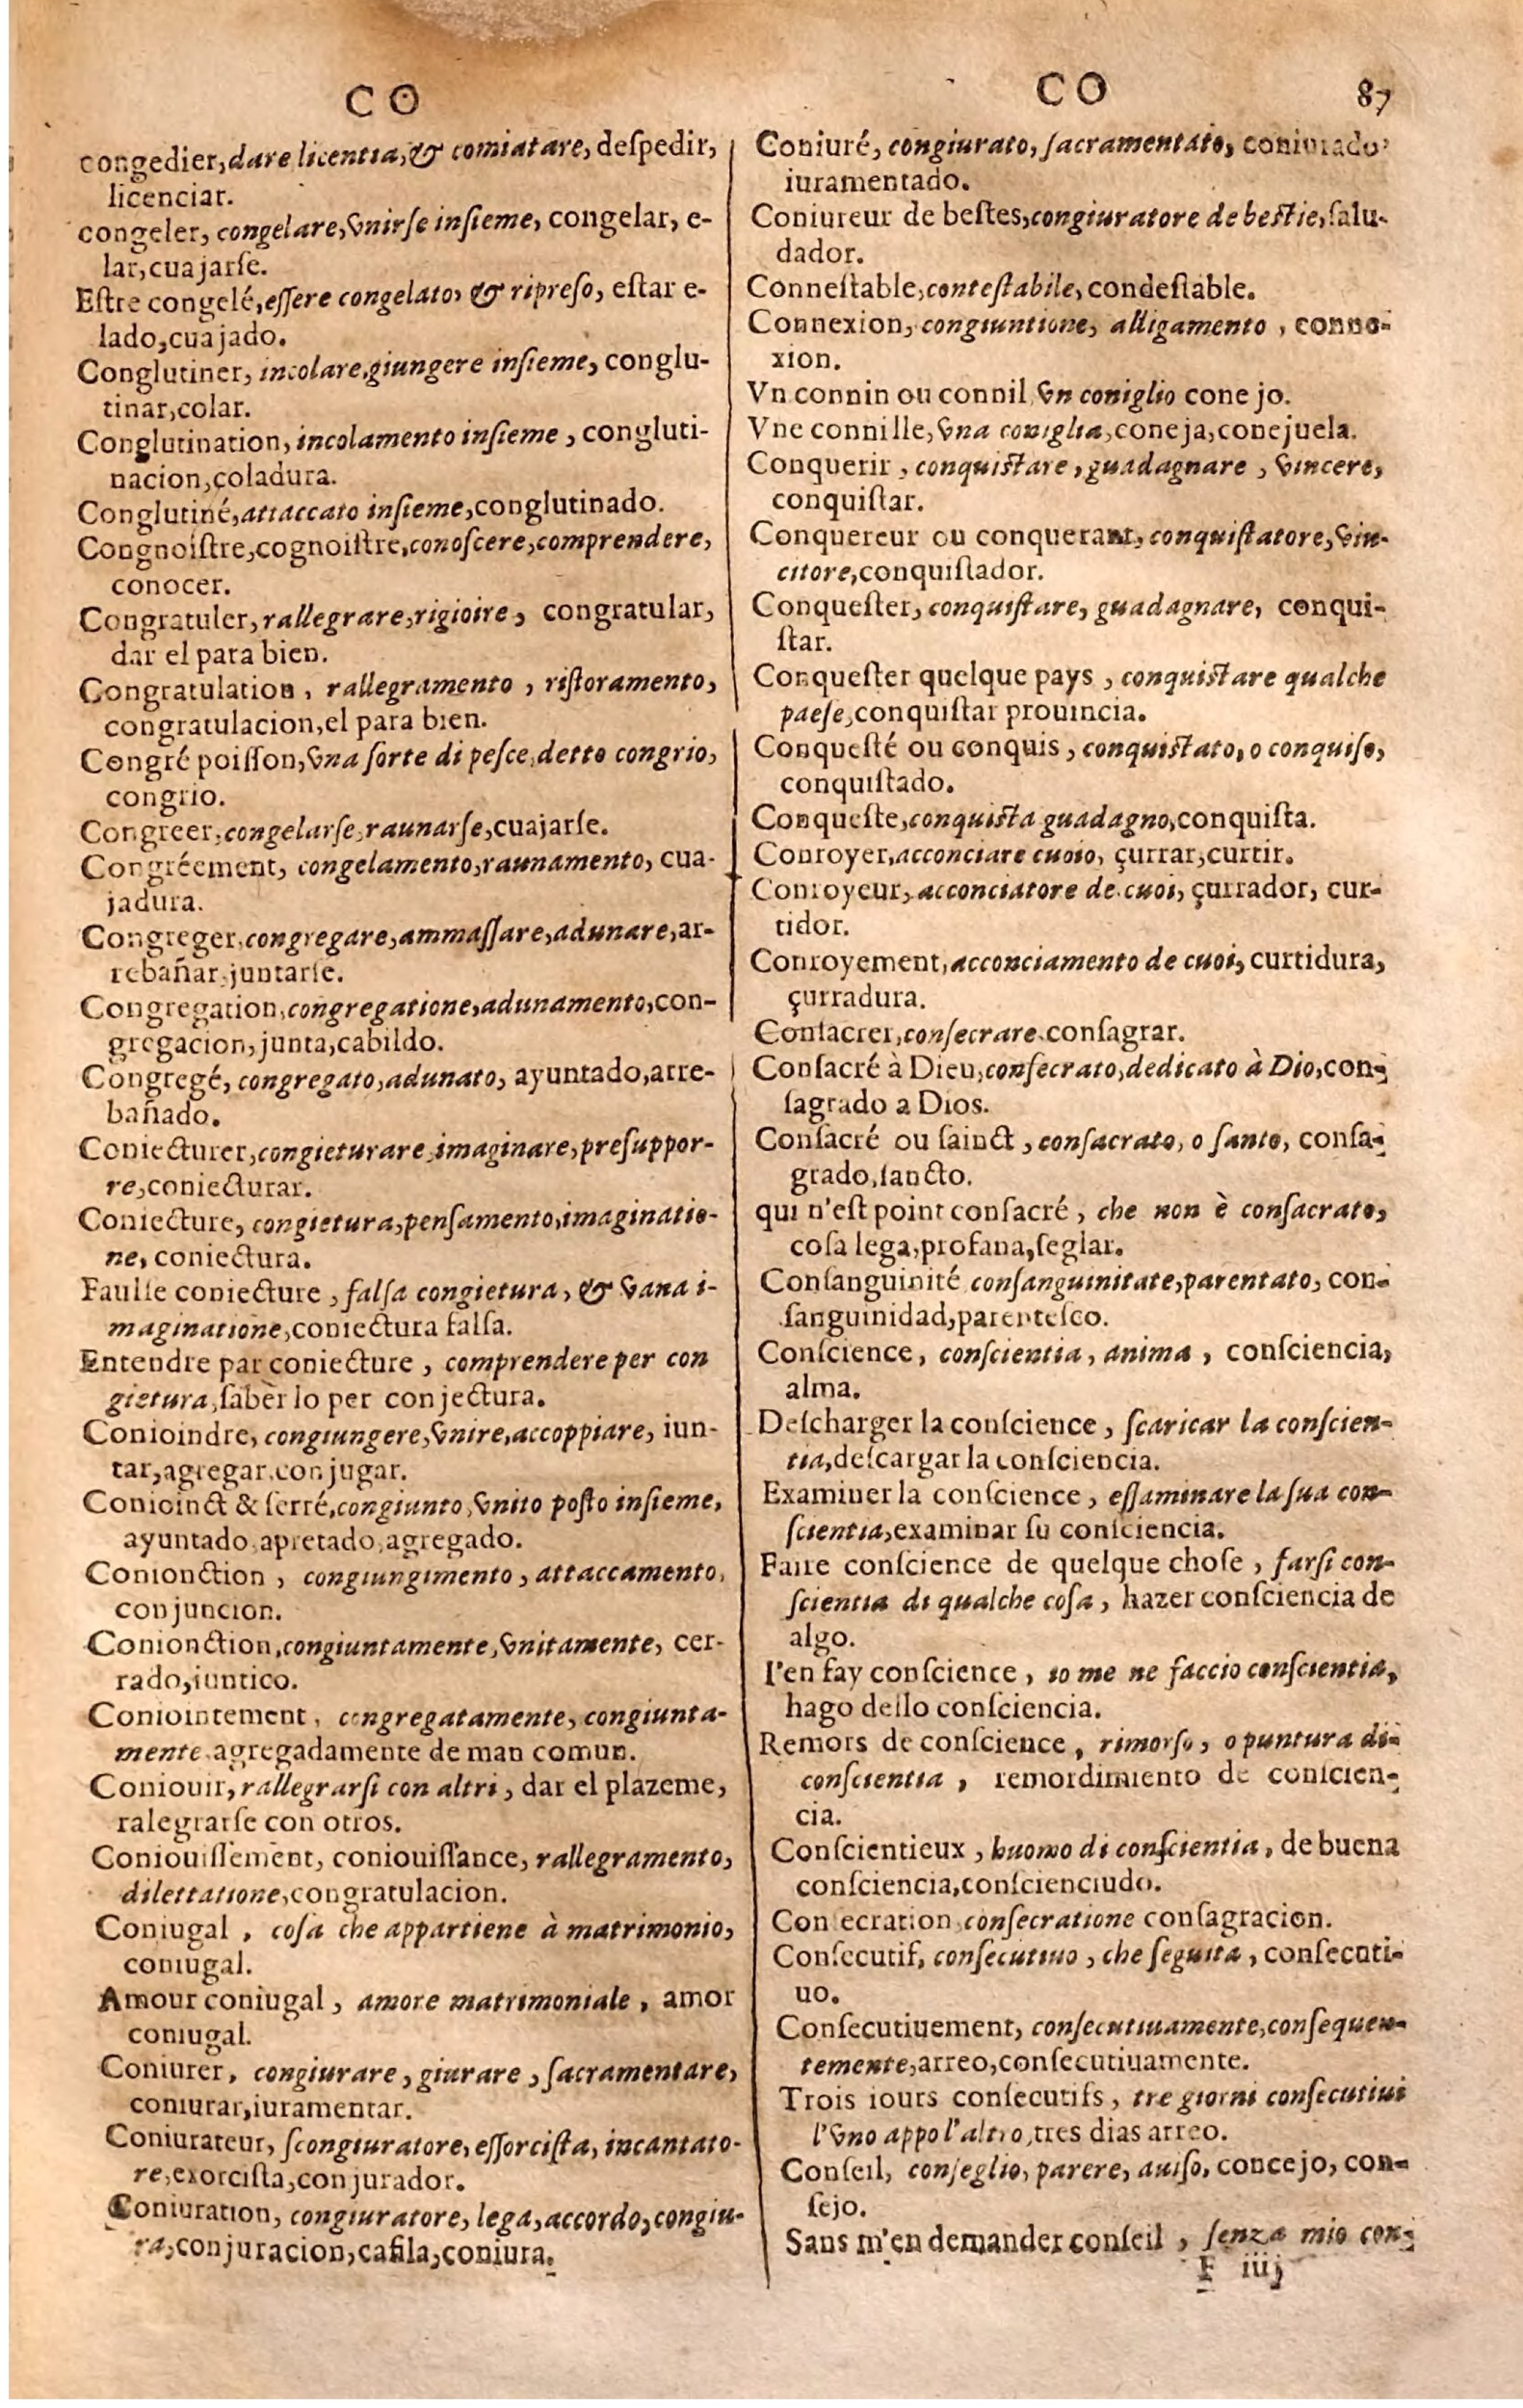 CO
congedier, dare licentia, & comiatare, deſpedir,
licenciar.
congeler, congelare, vnirſe inſieme, congelar, e-
lar, cuajarſe.
Eſtre congelé, eſſere congelato, & ripreſo, eſtar e-
lado, cuajado.
Conglutiner, incolare, giungere inſieme, conglu-
tinar, colar.
Conglutination, incolamento inſieme, congluti-
nacion, coladura.
Conglutiné, attaccato inſieme, conglutinado.
Congnoiſtre, cognoiſtre, conoſcere, comprendere,
conocer.
Congratuler, rallegrare, rigioire, congratular,
dar el para bien.
Congratulation, rallegramento, riſtoramento,
congratulacion, el para bien.
Congré poiſſon, vna ſorte di peſce, detto congrio,
congrio.
Congreer, congelarſe, raunarſe, cuajarſe.
Congréement, congelamento, raunamento, cua-
jadura.
Congreger, congregare, ammaſſare, adunare, ar-
rebañar, juntarſe.
Congregation, congregatione, adunamento, con-
gregacion, junta, cabildo.
Congregé, congregato, adunato, ayuntado, arre-
bañado.
Coniecturer, congieturare, imaginare, preſuppor-
re, coniecturar.
Coniecture, congietura, penſamento, imaginatio-
ne, coniectura.
Faulſe coniecture, falſa congietura, & vana i-
maginatione, coniectura falſa.
Entendre par coniecture, comprendere per con
gietura, ſabèr lo per conjectura.
Conioindre, congiungere, vnire, accoppiare, iun-
tar, agregar, conjugar.
Conioinct & ſerré, congiunto, vnito poſto inſieme,
ayuntado, apretado, agregado.
Conionction, congiungimento, attaccamento,
conjuncion.
Conionction, congiuntamente, vnitamente, cer-
rado, iuntico.
Coniointement, congregatamente, congiunta-
mente agregadamente de man comun.
Coniouir, rallegrarſi con altri, dar el plazeme,
ralegrarſe con otros.
Coniouiſſement, coniouiſſance, rallegramento,
dilettatione, congratulacion.
Coniugal, coſa che appartiene à matrimonio,
coniugal.
Amour coniugal, amore matrimoniale, amor
coniugal.
Coniurer, congiurare, giurare, ſacramentare,
coniurar, iuramentar.
Coniurateur, ſcongiuratore, eſſorciſta, incantato-
re, exorciſta, conjurador.
Coniuration, congiuratore, lega, accordo, congiu-
ra, conjuracion, cafila, coniura.
CO 87
Coniuré, congiurato, ſacramentato, coniurado
iuramentado.
Coniureur de beſtes, congiuratore de beſtie, ſalu-
dador.
Conneſtable, conteſtabile, condeſtable.
Connexion, congiuntione, alligamento, conne-
xion.
Vn connin ou connil, vn coniglio conejo.
Vne connille, vna coniglia, coneja, conejuela.
Conquerir, conquiſtare, guadagnare, vincere,
conquiſtar.
Conquereur ou conquerant, conquiſtatore, vin-
citore, conquiſtador.
Conqueſter, conquiſtare, guadagnare, conqui-
ſtar.
Conqueſter quelque pays, conquiſtare qualche
paeſe, conquiſtar prouincia.
Conqueſté ou conquis, conquiſtato, o conquiſo,
conquiſtado.
Conqueſte, conquiſta guadagno, conquiſta.
Conroyer, acconciare cuoio, çurrar, curtir.
Conroyeur, acconciatore de cuoi, çurrador, cur-
tidor.
Conroyement, acconciamento de cuoi, curtidura,
çurradura.
Conſacrer, conſecrare conſagrar.
Conſacré à Dieu, conſecrato, dedicato à Dio, con-
ſagrado a Dios.
Conſacré ou ſainct, conſacrato, o ſanto, conſa-
grado, ſancto.
qui n'eſt point conſacré, che non è conſacrato,
coſa lega, profana, ſeglar.
Conſanguinité conſanguinitate, parentato, con-
ſanguinidad, parenteſco.
Conſcience, conſcientia, anima, conſciencia,
alma.
Deſcharger la conſcience, ſcaricar la conſcien-
tia, deſcargar la conſciencia.
Examiner la conſcience, eſſaminare la ſua con-
ſcientia, examinar ſu conſciencia.
Faire conſcience de quelque choſe, farſi con-
ſcientia di qualche coſa, hazer conſciencia de
algo.
I'en fay conſcience, io me ne faccio conſcientia,
hago dello conſciencia.
Remors de conſcience, rimorſo, o puntura di
conſcientia, remordimiento de conſcien-
cia.
Conſcientieux, huomo di conſcientia, de buena
conſciencia, conſcienciudo.
Con ecration, conſecratione conſagracion.
Conſecutif, conſecutiuo, che ſeguita, conſecuti-
uo.
Conſecutiuement, conſecutiuamente, conſequen-
temente, arreo, conſecutiuamente.
Trois iours conſecutifs, tre giorni conſecutiui
l'vno appo l'altro, tres dias arreo.
Conſeil, conſeglio, parere, auiſo, concejo, con-
ſejo.
Sans m'en demander conſeil, ſenza mio con-
F iiij